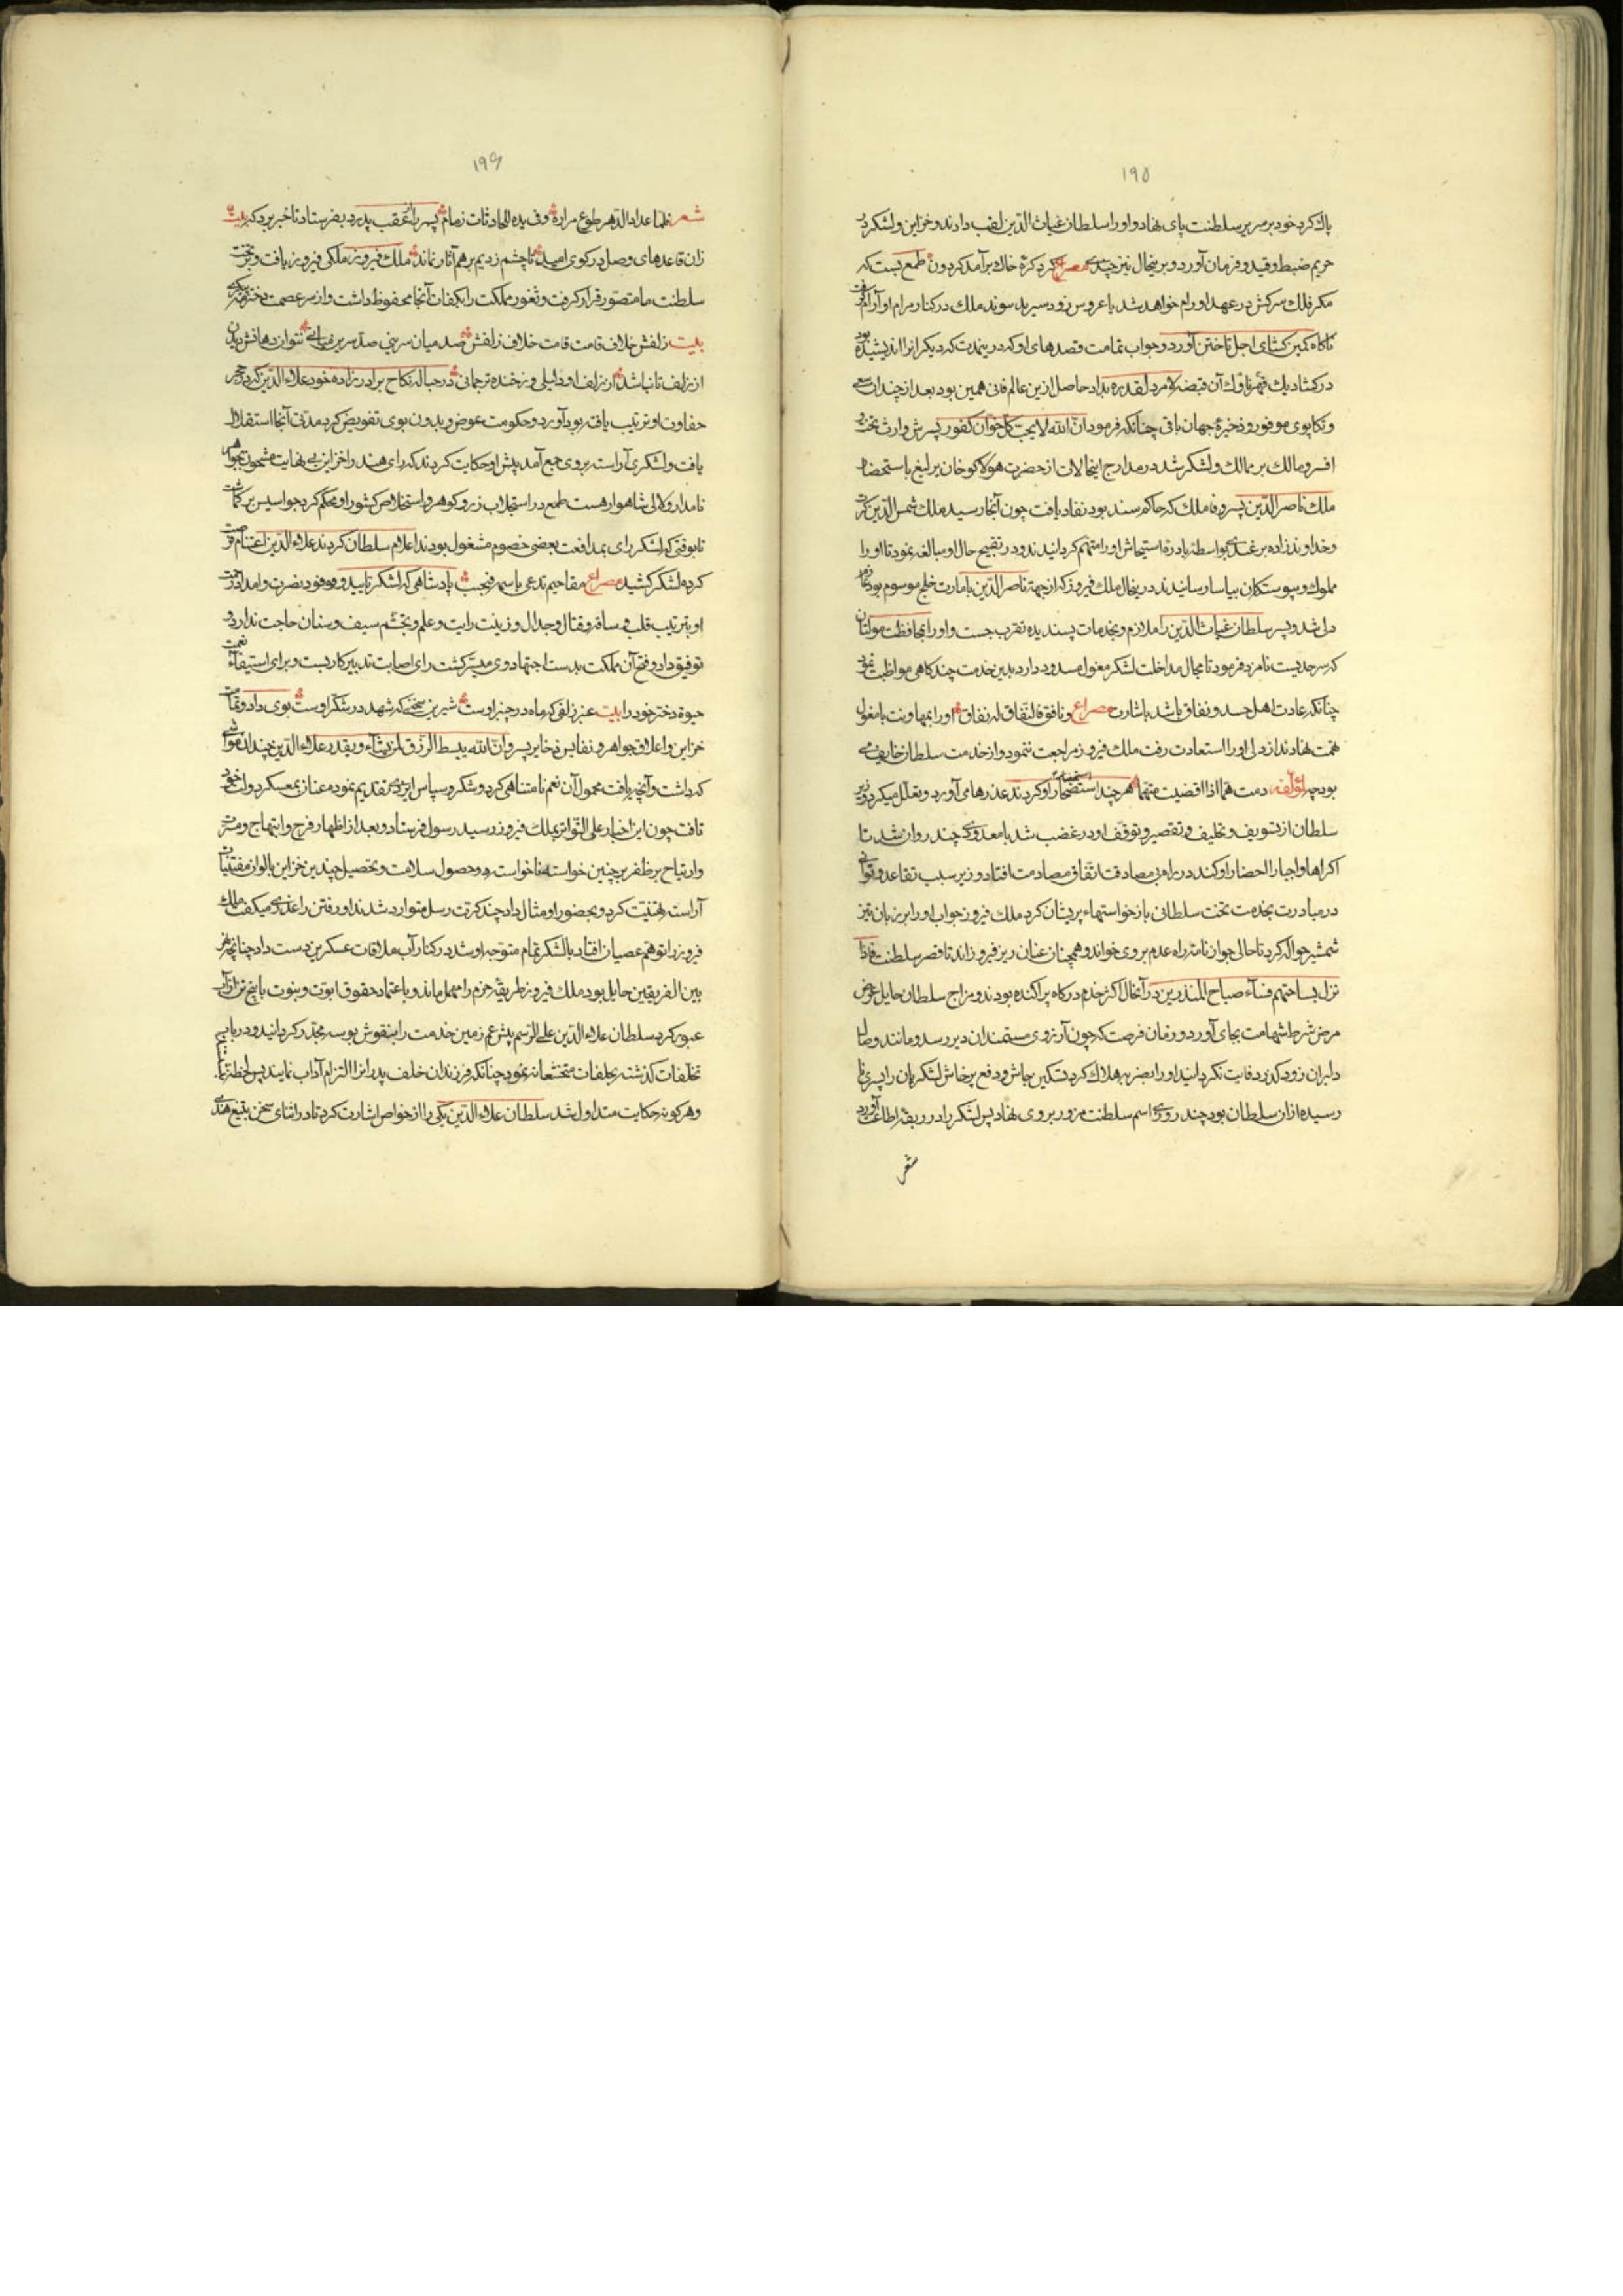 ۱۹۵
پاك كرد خود بر سرير سلطنت پاى نهاد و او را سلطان غياث الدين لقب دادند و خزاين و لشكر در
حريم ضبط و قيد و فرمان آورد و برينحال نيز چندى مصراع گرد كرهٔ خاك برآمد گردون طمع بست كه
مكر فلك سركش در عهد او رام خواهد شد يا عروس ملك در كنار مرام او آرام گرفت
ناكاه كمين كشاى اجل تاختن آورد و جواب تمامت قصدهاى او كه در ينمدت كه ديكرانرا انديشيده بود
در كشاد يك آن قبضه لامرد لقدره بداد حاصل ازين عالم فانى همين بود بعد از چندان سعى
و تكاپوى موفور و ذخيرهٔ جهان باقى چنانكه فرمود ان الله لا يحب كل خوان كفور پسرش وارث تخت و
افسر و مالك بر ممالك و لشكر شد در مدارج اينحالات از حضرت هولاكو خان يرليغ باستحضار
ملك ناصر الدين پسر وفا ملك كه حاكم سند بود نفاذ يافت چون آنجا رسيد ملك شمس الدين كرت
و خداوند زاده بواسطهٔ بادرهٔ استيحاش او را متهم كردانيدند و در تقبيح حال او مبالغه نمود تا او را
مملوك و پيوستكان بياسا رسانيدند درينحال ملك فيروز كه از جهة ناصر الدين بامارت خلج موسوم بود
دلى شد و پسر سلطان غياث الدين را ملازم و بخدمات پسنديده تقرب جست و او را بمحافظت مولتان
كه سرحديست نامزد فرمود تا مجال مداخلت لشكر مغول مسدود دارد بدين خدمت چند كاهى مواظبت نمود
چنانكه عادت اهل حسد و نفاق باشد باشارت مصراع و نافق فالنفاق له نفاق او را بمهاونت با مغول
تهمت نهادند از دلى او را استعادت رفت ملك فيروز مراجعت ننمود و از خدمت سلطان خايف مى
بود چه لمؤلفه هر چند استحضار او كردند عذرها مى آورد و تعلل ميكرد
سلطان از تسويف و تخليف و تقصير و توقف او در غضب شد با معدودى چند روان شد تا
اكراها و اجبارا احضار او كند در راه بى مصادقت اتفاق مصادمت افتاد وزير سبب تقاعد و توانى
در مبادرت بخدمت تخت سلطانى بازخواستهاء پريشان كرد ملك فيروز جواب او را بر زبان تيز
شمشير حواله كرد تا حالى جواز نامهٔ راه عدم بر وى خواند و همچنان عنان ريز فيروز راند تا قصر سلطنت فاذا
نزل بساحتهم فساء صباح المنذرين در آنحال اكثر خدم دركاه پراكنده بودند و مزاج سلطان حايل عرض
مرض شرط شهامت بجاى آورد و در زمان فرصت كه چون آرزوى مستمندان دير رسد و مانند وصال
دلبران زود كذرد فايت نكردانيد و او را بضربه هلاك كرد تسكين جاش و دفع پرخاش لشكريان را پسرى نا
رسيده از آن سلطان بود چند روزى اسم سلطنت مزور بر وى نهاد پس لشكر را در ربقهٔ اطاعت آورد
شعر
۱۹۶
شعر فلما عدا الدهر طوع مراده و فى يده للحادثات زمام پسر را عقب پدر بفرستاد تا خبر برد كه بيت
زان قاعدهاى وصل در كوى اميد تا چشم زديم بر هم آثار نماند ملك فيروز ملكى فيروز يافت و بر تخت
سلطنت ما متصور قرار كرفت و ثغور مملكت را بكفات آنجا محفوظ داشت و از سر عصمت دختر
بيت زلفش خلاف قامت قامت خلاف زلفش صد ميان سر نى صد سر بر ميانى نتوان دهانش ديدن
از زلف تا نباشد از زلف او دليلى وز خنده ترجمانى در حبالهٔ نكاح برادر زاده خود علاء الدين كه در حجر
حفاوت او ترتيب يافته بود آورد و حكومت عوض و بدون بوى تفويض كرد مدتى آنجا استقلال
يافت و لشكرى آراسته بر وى جمع آمد پيش او حكايت كردند كه راى هند را خزاين بى نهايت مشحون بجواهر
نامدار و لآلى شاهوار هست طمع در استجلاب زر و كوهر و استخلاص كشور او محكم كرد جواسيس بر كماشت
تا بوقتى كه لشكر راى بمدافعت بعضى خصوم مشغول بودند اعلام سلطان كردند علاء الدين اغتنام فرصت
كرده لشكر كشيد مصراع پادشاهى كه لشكر تاييد و وفود نصرت و امداد
او بترتيب قلب و ساقه و قتال و جدال و زينت رايت و علم و تجشم سيف و سنان حاجت ندارد
توفيق داد و فتح آن مملكت بدست اجتهاد وى ميسر كشت راى اصابت تدبير كار بست و براى استيفاء نعمت
حيوة دختر خود را بيت عنبر زلفى كه ماه در چنبر اوست شيرين سخنى كه شهد در شكر اوست بوى داد و تمامت
خزاين و اعلاق جواهر و نفايس ذخاير بسر وان الله يبسط الرزق لمن يشاء و يقدر علاء الدين چندان مواشى
كه داشت و آنچه يافت محمول آن نعم نامتناهى كرد و شكر و سپاس ايزدى تقديم نمود عنان بمعسكر دولت خود
تافت چون اين اخبار على التواتر بملك فيروز رسيد رسول فرستاد و بعد از اظهار فرح و ابتهاج و مسرت
و ارتياح بر ظفر بر چنين خواستهٔ ناخواسته و حصول سلامت و تحصيل چندين خزاين بالوان مقتنيات
آراسته تهنيت كرد و بحضور او مثال داد چند كرت رسل متوارد شدند او رفتن را عذرى ميكفت ملك
فيروز را توهم عصيان افتاد با لشكر تمام متوجه او شد در كنار آب ملاقات عسكرين دست داد چنانچه نهر
بين الفريقين حايل بود ملك فيروز طريقهٔ حزم را مهمل ماند و باعتماد حقوق ابوت و بنوت با پنج نفر از آب
عبور كرد سلطان علاء الدين على الرسم پيش عم زمين خدمت را بنقوش بوسه مجدر كردانيد و در باب
تخلفات كذشته تخشعانه نمود چنانكه فرزندان خلف پدرانرا التزام آداب نمايند پس لحظهٔ
و هر كونه حكايت متداول شد سلطان علاء الدين يكى را از خواص اشارت كرد تا در اثناى سخن بتيغ هندى